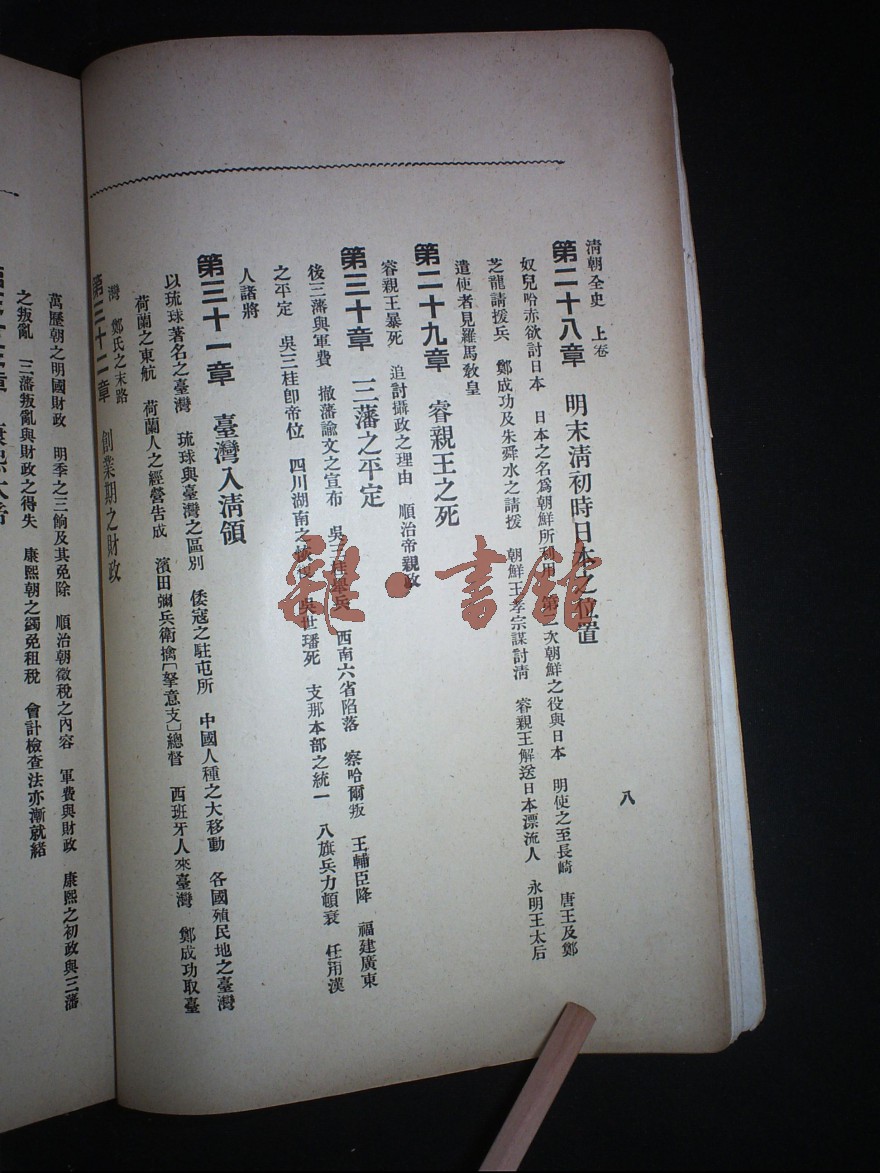 清朝全史 上卷
八
第二十八章 明末淸初時日本之位置
奴兒哈赤欲討日本 日本之名爲朝鮮所利用 第二次朝鮮之役與日本 明使之至長崎 唐王及鄭
芝龍請援兵 鄭成功及朱舜水之請援 朝鮮王孝宗謀討淸 睿親王解送日本漂流人 永明王太后
遣使者見羅馬敎皇
第二十九章 睿親王之死
睿親王暴死 追討攝政之理由 順治帝親政
第三十章 三藩之平定
後三藩與軍費 撤藩諭文之宣布 吳三桂舉兵 西南六省陷落 察哈爾叛 王輔臣降 福建廣東
之平定 吳三桂卽帝位 四川湖南之 吳世璠死 支那本部之統一 八旗兵力頓衰 任用漢
人諸將
第三十一章 臺灣入淸領
以琉球著名之臺灣 琉球與臺灣之區別 倭寇之駐屯所 中國人種之大移動 各國殖民地之臺灣
荷蘭之東航 荷蘭人之經營吿成 濱田彌兵衛擒〔拏意支〕總督 西班牙人來臺灣 鄭成功取臺
灣 鄭氏之末路
第三十二章 創業期之財政
萬曆朝之明國財政 明季之三餉及其免除 順治朝徵稅之內容 軍費與財政 康熙之初政與三藩
之叛亂 三藩叛亂與財政之得失 康熙朝之蠲免租稅 會計檢查法亦漸就緒
雜·書館